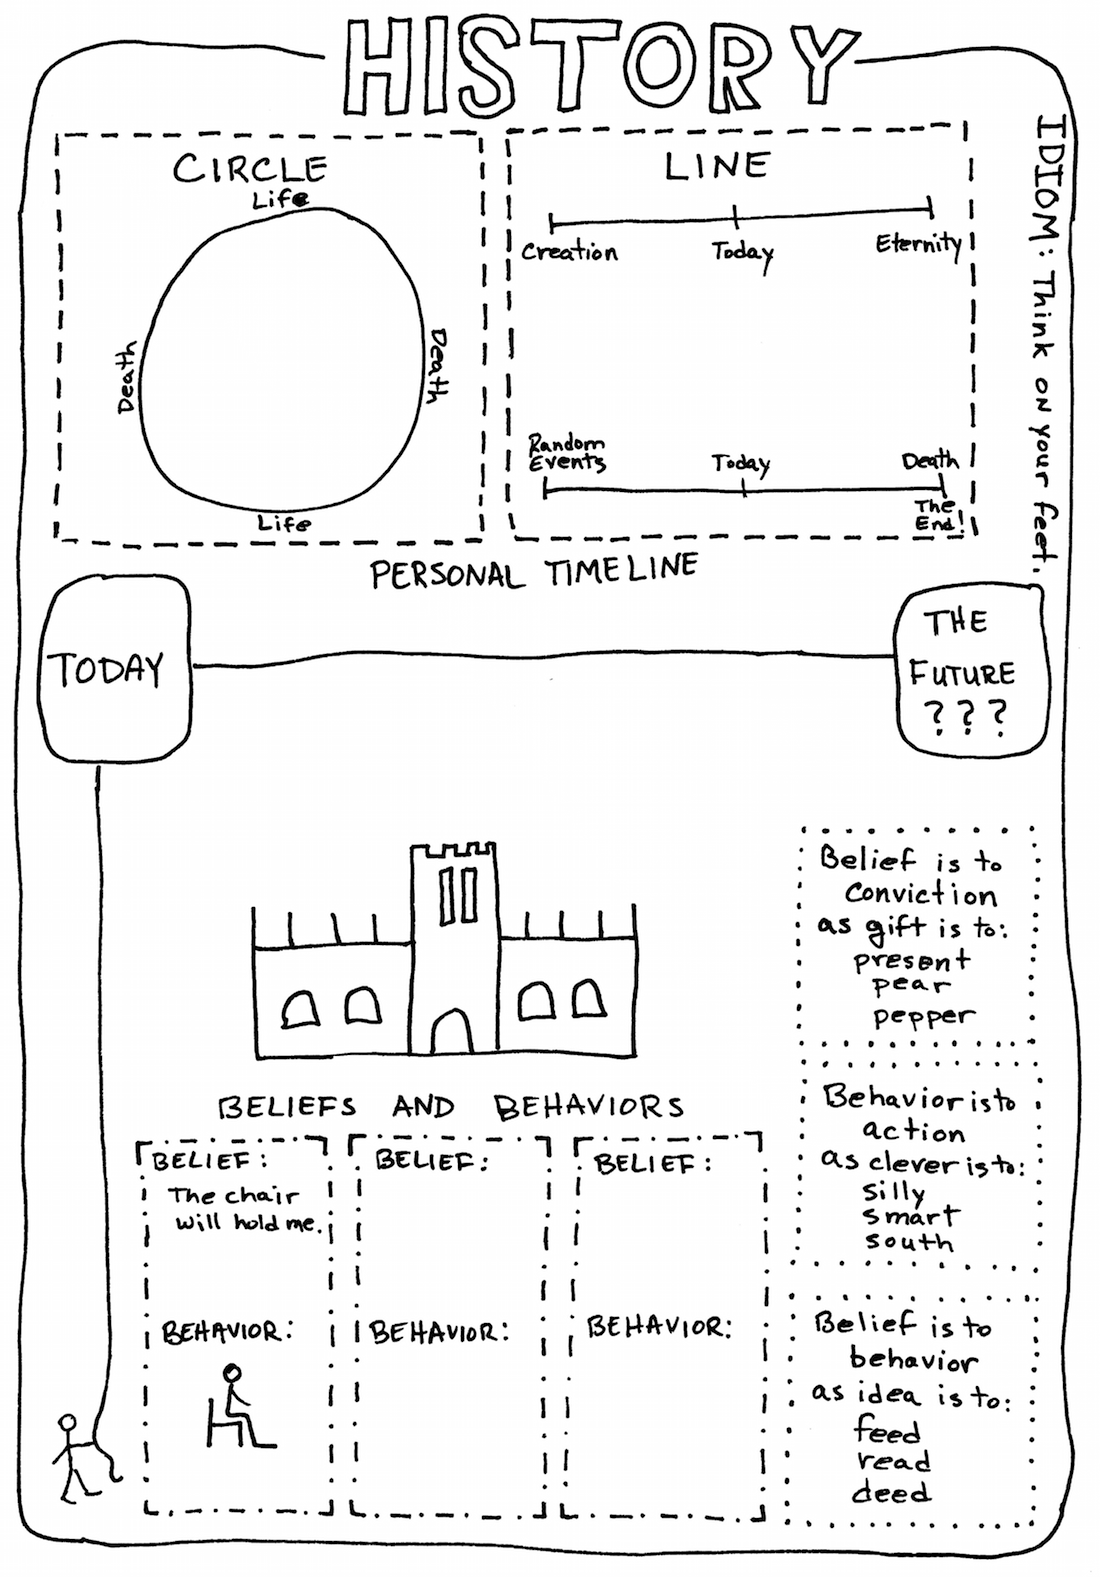 HISTORY
CIRCLE
Life
Death
Death
Life
LINE
Creation Today Eternity
Random
Events
Today
Death
The
End!
IDIOM: Think on your feet.
PERSONAL TIMELINE
TODAY
THE
FUTURE
???
Belief is to
conviction
as gift is to:
present
pear
pepper
Behavior is to
action
as clever is to:
silly
smart
south
Belief is to
behavior
as idea is to:
feed
read
deed
BELIEFS AND BEHAVIORS
BELIEF:
The chair
will hold me.
BEHAVIOR:
BELIEF:
BEHAVIOR:
BELIEF:
BEHAVIOR: